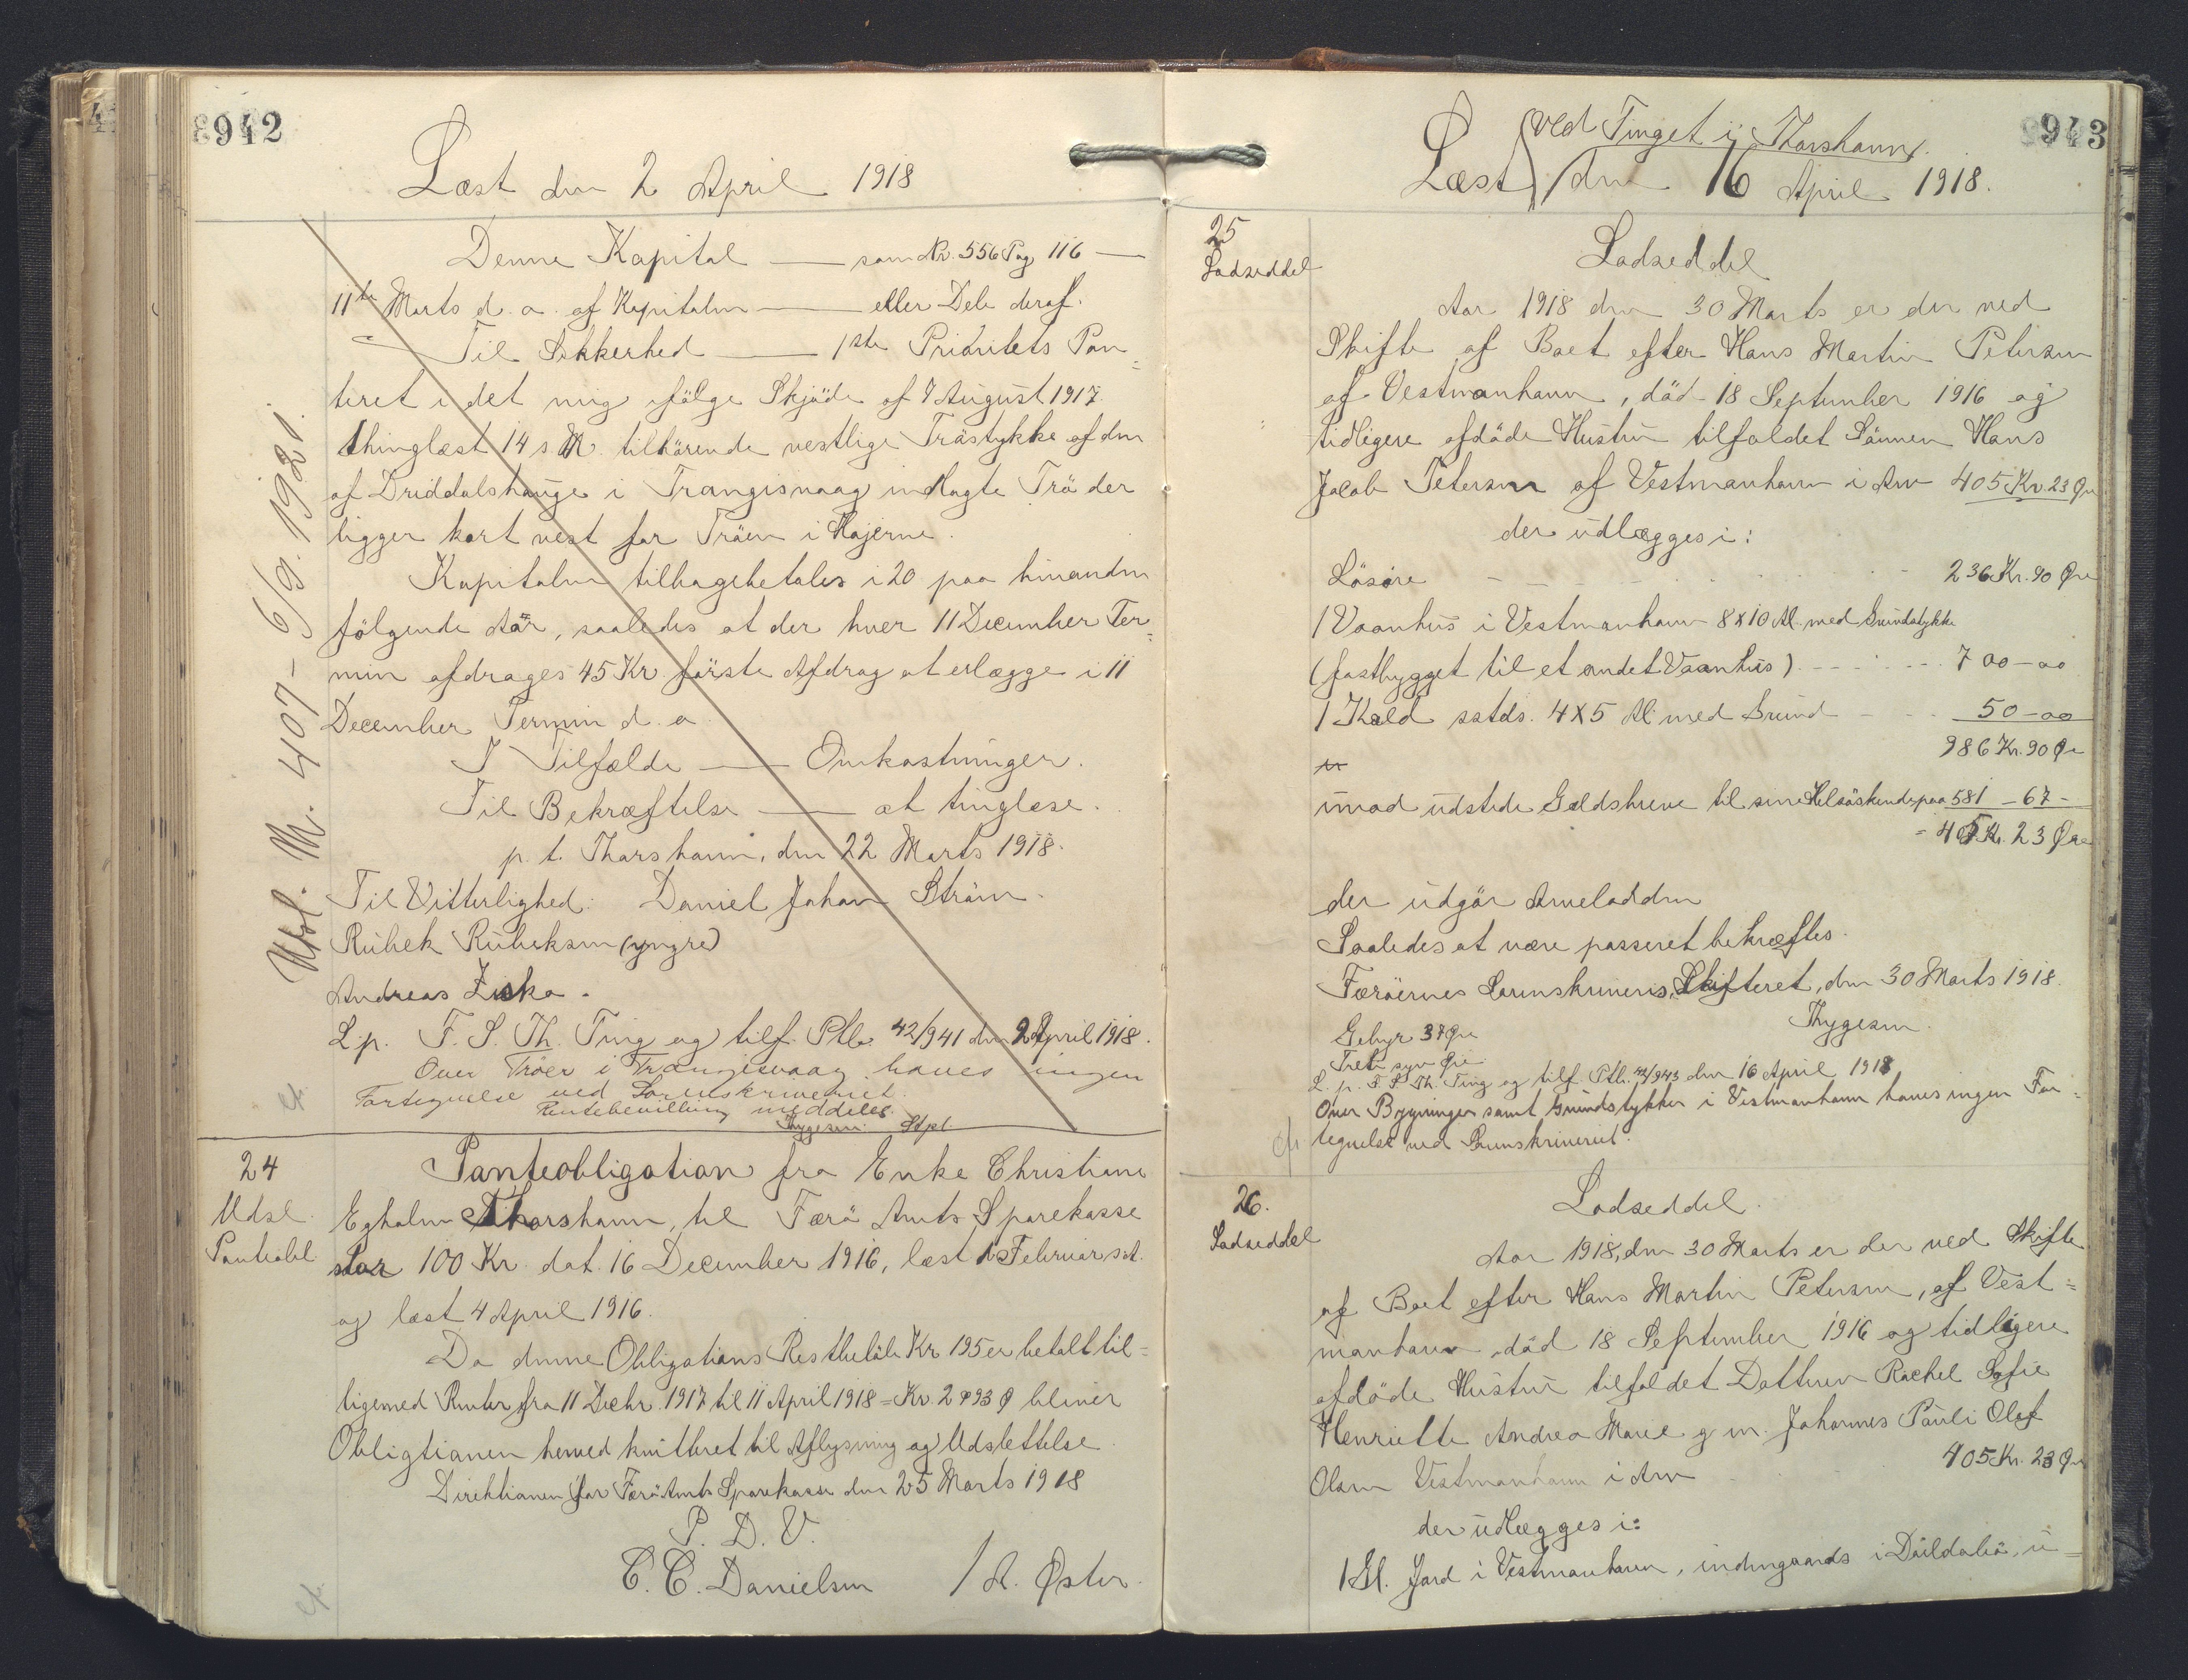 942
Læst den 2 April 1918
Denne Kapital — som Nr. 556 Pag 116 —
11te Marts d. a. af Kapitalen — eller Dele deraf.
Til Sikkerhed — 1ste Prioritets Pan=
teret i det mig ifølge Skjöde af 7 August 1917
thinglæst 14 s. M. tilhörende vestlige Tröstykke af den
af Driddalshauge i Trangisvaag indtagte Trö der
ligger kort vest for Tröen i Hajerne.
Kapitalen tilbagebetales i 20 paa hinanden
fölgende Aar, saaledes at der hver 11 December Ter=
min afdrages 45 Kr. förste Afdrag at erlægge i 11
December Termin d. a.
I Tilfælde — Omkostninger.
Til Bekræftelse — at tinglæse.
p. t. Thorshavn, den 22 Marts 1918.
Til Vitterlighed: Daniel Johan Ström.
Rubek Rubeksen (yngre)
Andreas Ziska.
L. p. F. S. Th. Ting og tilf. Ptb. 42/941 den 2 April 1918.
Over Tröer i Trangisvaag haves ingen
Fortegnelse ved Sorenskriveriet.
Rentebevilling meddeles.
Thygesen. Stpl.
Udsl. M. 407 - 6/9. 1921.
24
Udsl.
Panteobl.
Panteobligation fra Enke Christiane
Egholm Thorshavn, til Færö Amts Sparekasse
stor 100 Kr. dat. 16 December 1916, læst Februar s. A.
og læst 4 April 1916.
Da denne Obligations Restbelöb Kr 195 er betalt til=
ligemed Renter fra 11 Decbr. 1917 til 11 April 1918 = Kr. 2 93 Ø bliver
Obligtionen herved kvitteret til Aflysning og Udslettelse.
Direktionen for Færö Amts Sparekasse den 25 Marts 1918
P. D. V.
C. C. Danielsen / A. Øster.
943
ved Tinget i Thorshavn
Læst den 16 April 1918.
25
Lodseddel
Lodseddel
Aar 1918 den 30 Marts er der ved
Skifte af Boet efter Hans Martin Petersen
af Vestmanhavn, död 18 September 1916 og
tidligere afdöde Hustru tilfaldet Sönnen Hans
Jacob Petersen af Vestmanhavn i Arv 405 Kr. 23 Øre
der udlægges i:
Lösöre 236 Kr. 90 Øre
1 Vaanhus i Vestmanhavn 8 x 10 Al. med Grundstykke
(fastbygget til et andet Vaanhus) 700 - 00
1 Kjeld sstds. 4 X 5 Al. med Grund 50 - 00
986 Kr. 90 Øre
imod udstede Gældsbreve til sine Helsöskende paa 581 - 67 -
= 405 Kr. 23 Øre
der udgör Arvelodden
Saaledes at være passeret bekræftes.
Færöernes Sorenskriveris Skifteret, den 30 Marts 1918.
Thygesen.
Gebyr 37 Øre
Treti syv Øre
L. p. F. S. Th. Ting og tilf. Ptb. 42/943 den 16 April 1918
Over Bygninger samt Grundstykker i Vestmanhavn haves ingen For=
tegnelse ved Sorenskriveriet.
26.
Lodseddel
Lodseddel.
Aar 1918, den 30 Marts er der ved Skifte
af Boet efter Hans Martin Petersen, af Vest=
manhavn, död 18 September 1916 og tidligere
afdöde Hustru tilfaldet Datteren Rachel Sofie
Henriette Andrea Marie g. m. Johannes Pauli Olaf
Olsen Vestmanhavn i Arv 405 Kr. 23 Øre
der udlægges i:
1 Gl. Jord i Vestmanhavn, indengaards i